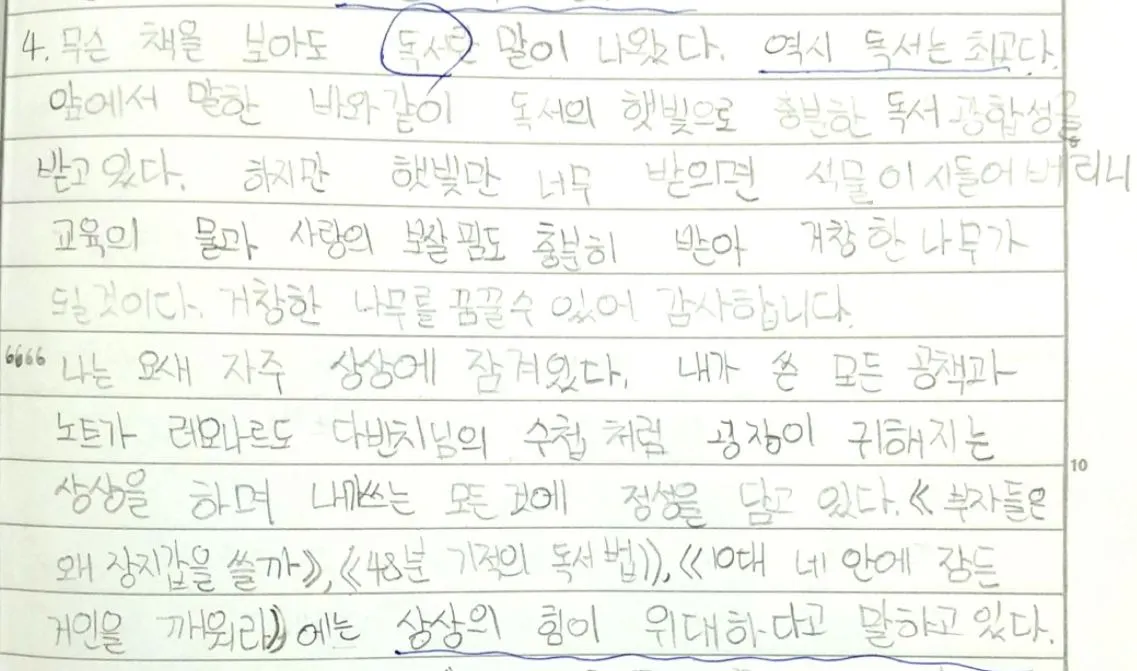 4. 무슨 책을 보아도 독서란 말이 나왔다. 역시 독서는 최고다.
앞에서 말한 바와같이 독서의 햇빛으로 충분한 독서 광합성을
받고있다. 하지만 햇빛만 너무 받으면 석물이 시들어버리니
교육의 물과 사랑의 보살핌도 충분히 받아 거창한 나무가
되일것이다. 거창한 나무를 꿈꿀수 있어 감사합니다.
6666 나는 요새 자주 상상에 잠겨있다. 내가 쓴 모든 공책과
노트가 레오나르도 다빈치님의 수첩 처럼 굉장이 귀해지는
상상을 하며 내가쓰는 모든것에 정성을 담고 있다.《부자들은
왜 장지갑을 쓸까》,《48분 기적의 독서법》,《10대 네 안에 잠든
거인을 깨워라》에는 상상의 힘이 위대하다고 말하고있다.
10